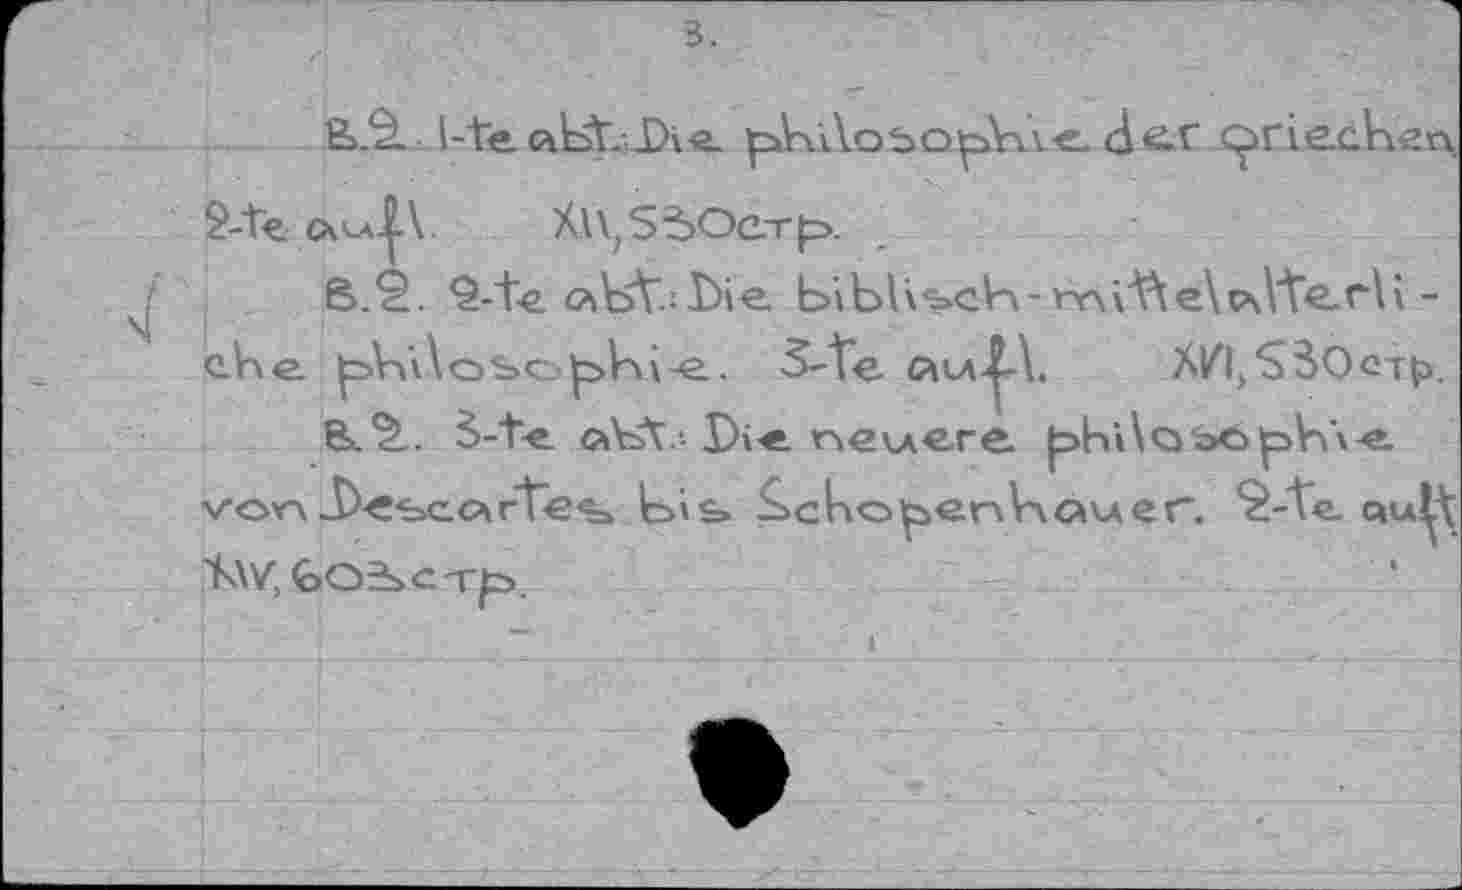 3.
B.2. 1-te abt.: Die philosophie der griechen
2-te aufl. XII, 530стр.
B.2. 2-te abt.: Die biblisch-mittelalterli-
che philosophie. 3-te aufl. XVI, 530стр.
B.2. 3-te abt.: Die neuere philosophie
von Descartes bis Schopenhauer. 2-te aufl.
XIV, 603стр.